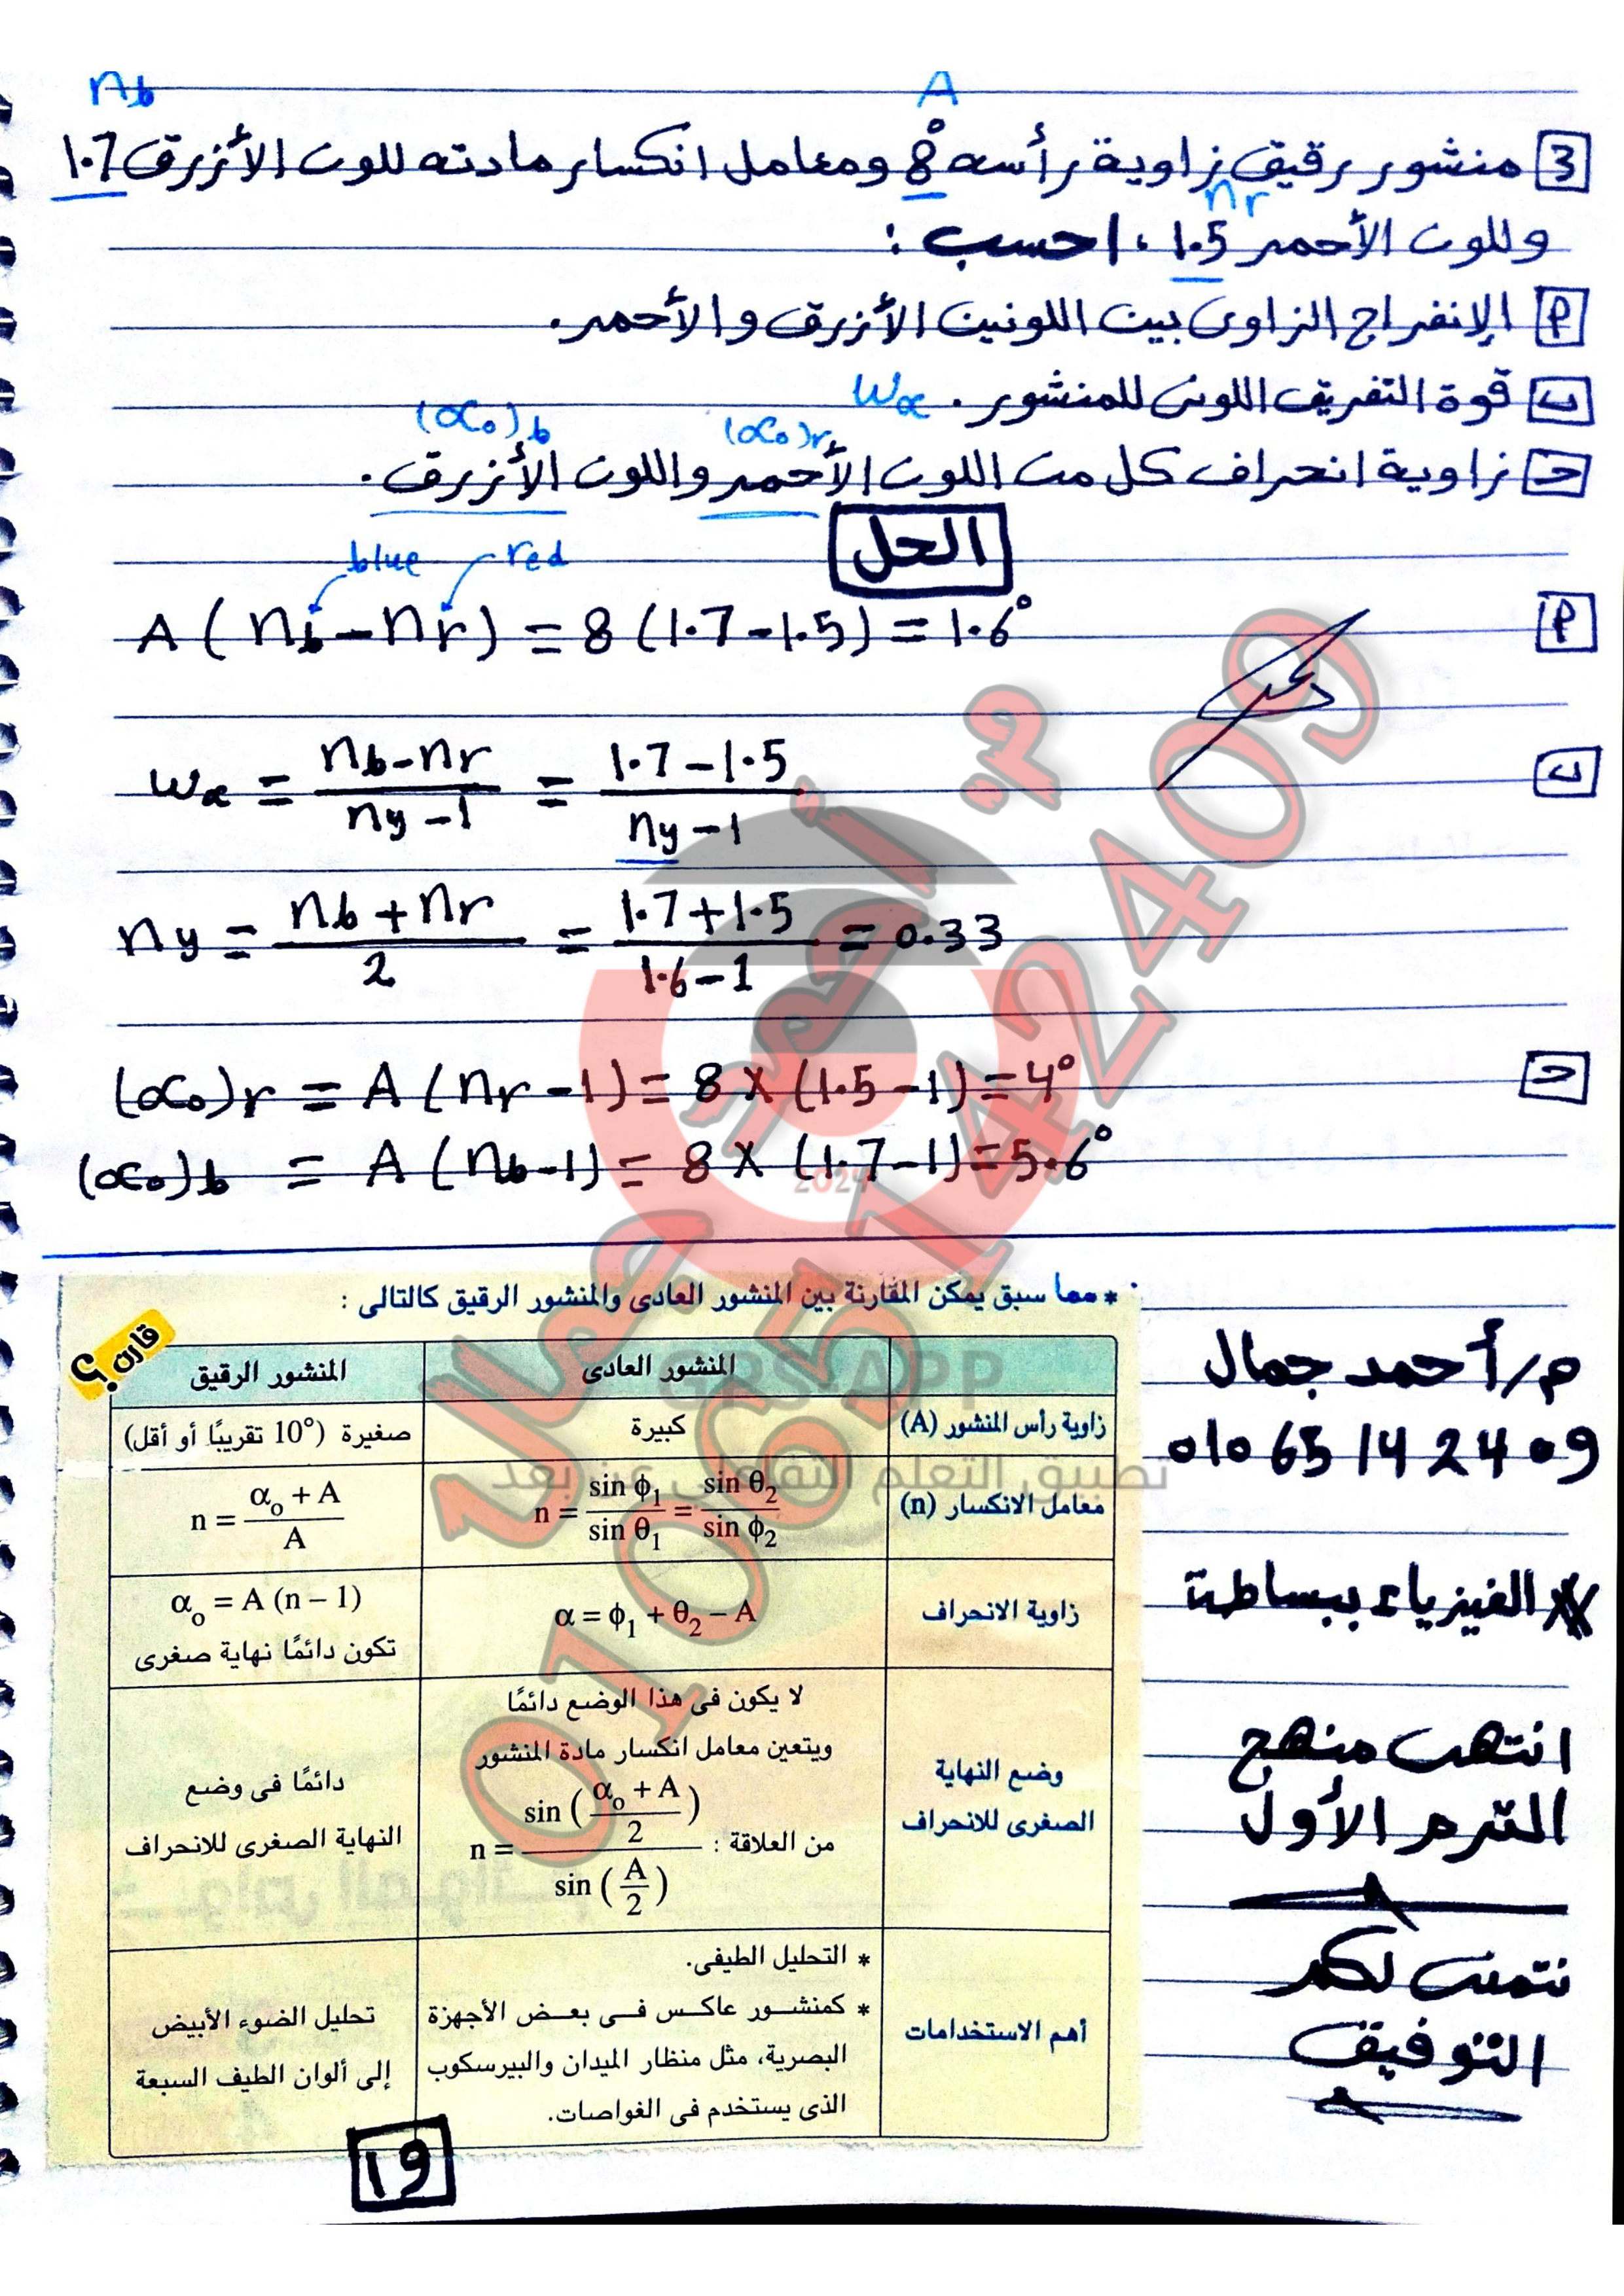 nb
A
3 منشور رقيق زاوية رأسه 8° ومعامل انكسار مادته للون الأزرق 1.7
nr
وللون الأحمر 1.5 ، احسب :
P الإنفراج الزاوى بين اللونين الأزرق والأحمر.
ب قوة التفريق اللونى للمنشور. wα
(α₀)b (α₀)r
جـ زاوية انحراف كل من اللون الأحمر واللون الأزرق.
الحل
blue red
P A (nb - nr) = 8 (1.7 - 1.5) = 1.6°
ب wα = (nb - nr)/(ny - 1) = (1.7 - 1.5)/(ny - 1)
ny = (nb + nr)/2 = (1.7 + 1.5)/(1.6 - 1) = 0.33
جـ (α₀)r = A (nr - 1) = 8 × (1.5 - 1) = 4°
(α₀)b = A (nb - 1) = 8 × (1.7 - 1) = 5.6°
* مما سبق يمكن المقارنة بين المنشور العادى والمنشور الرقيق كالتالى :
قارن ؟
المنشور العادى المنشور الرقيق
زاوية رأس المنشور (A) كبيرة صغيرة (10° تقريبًا أو أقل)
معامل الانكسار (n) n = sin ϕ₁/sin θ₁ = sin θ₂/sin ϕ₂ n = (α₀ + A)/A
زاوية الانحراف α = ϕ₁ + θ₂ – A α₀ = A (n – 1)
تكون دائمًا نهاية صغرى
وضع النهاية
الصغرى للانحراف
لا يكون فى هذا الوضع دائمًا
ويتعين معامل انكسار مادة المنشور
من العلاقة : n = sin ((α₀ + A)/2) / sin (A/2)
دائمًا فى وضع
النهاية الصغرى للانحراف
أهم الاستخدامات
* التحليل الطيفى.
* كمنشور عاكس فى بعض الأجهزة
البصرية، مثل منظار الميدان والبيرسكوب
الذى يستخدم فى الغواصات.
تحليل الضوء الأبيض
إلى ألوان الطيف السبعة
م/ أحمد جمال
01065142409
الفيزياء ببساطة
انتهى منهج
الترم الأول
نتمنى لكم
التوفيق
١٩
م. أحمد جمال
01065142409
2024
GPS-APP
تطبيق التعلم التفاعلي عن بعد